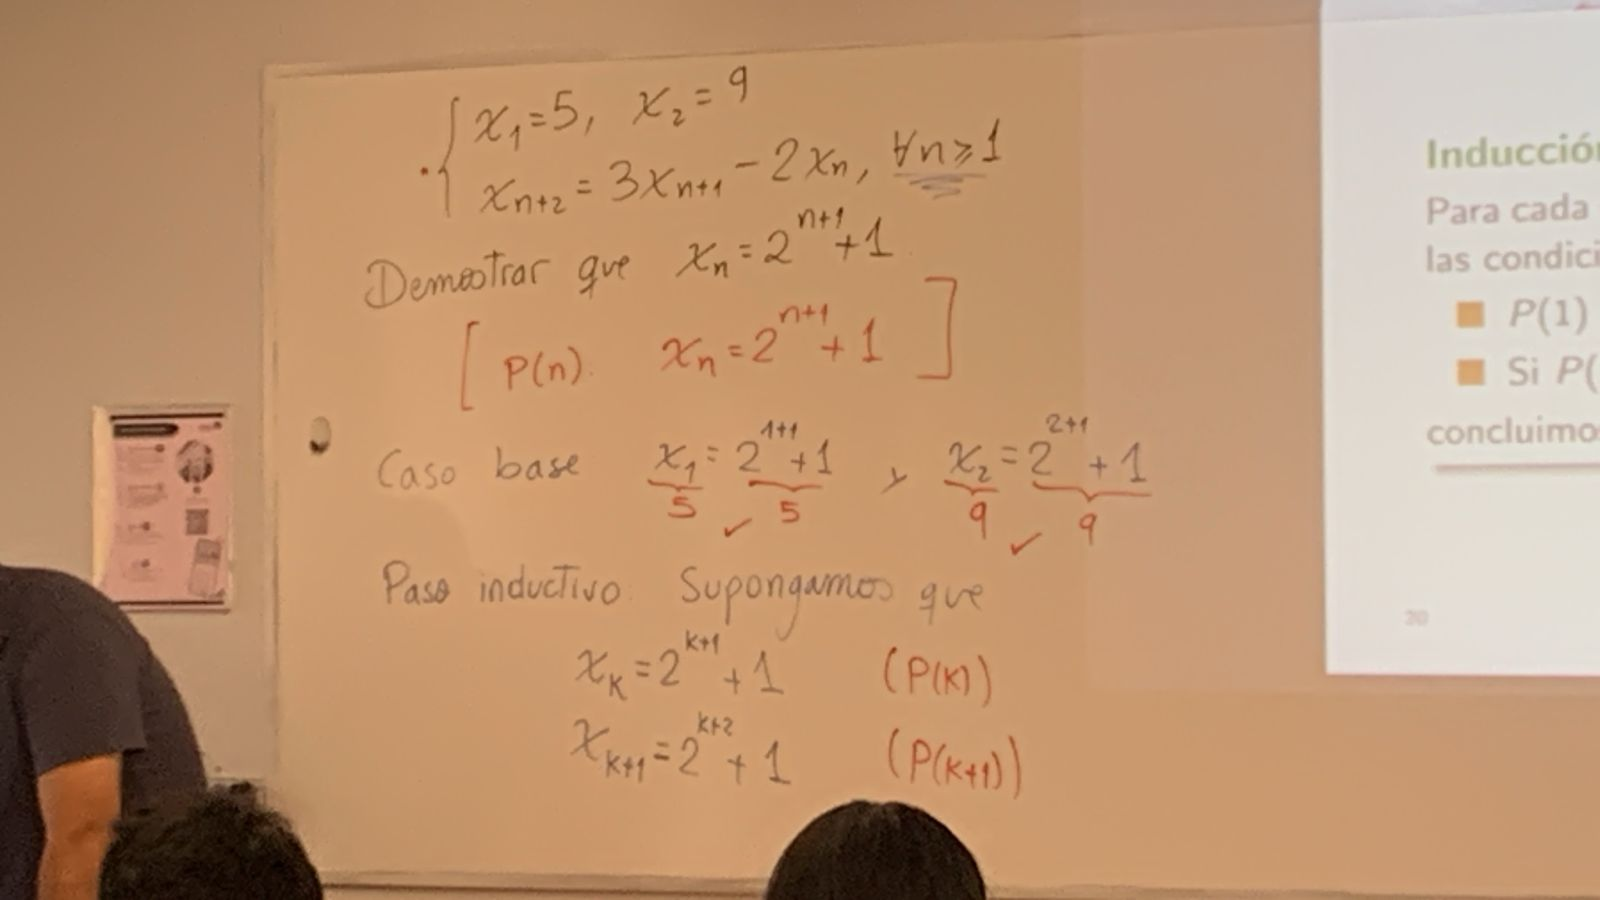 x₁=5, x₂=9
xₙ₊₂=3xₙ₊₁-2xₙ, ∀n≥1
Demostrar que xₙ=2ⁿ⁺¹+1
[P(n): xₙ=2ⁿ⁺¹+1]
Caso base x₁=2¹⁺¹+1 y x₂=2²⁺¹+1
5 ✓ 5 9 ✓ 9
Paso inductivo: Supongamos que
xₖ=2ᵏ⁺¹+1 (P(k))
xₖ₊₁=2ᵏ⁺²+1 (P(k+1))
Inducció
Para cada
las condici
P(1)
Si P(
concluimo
20